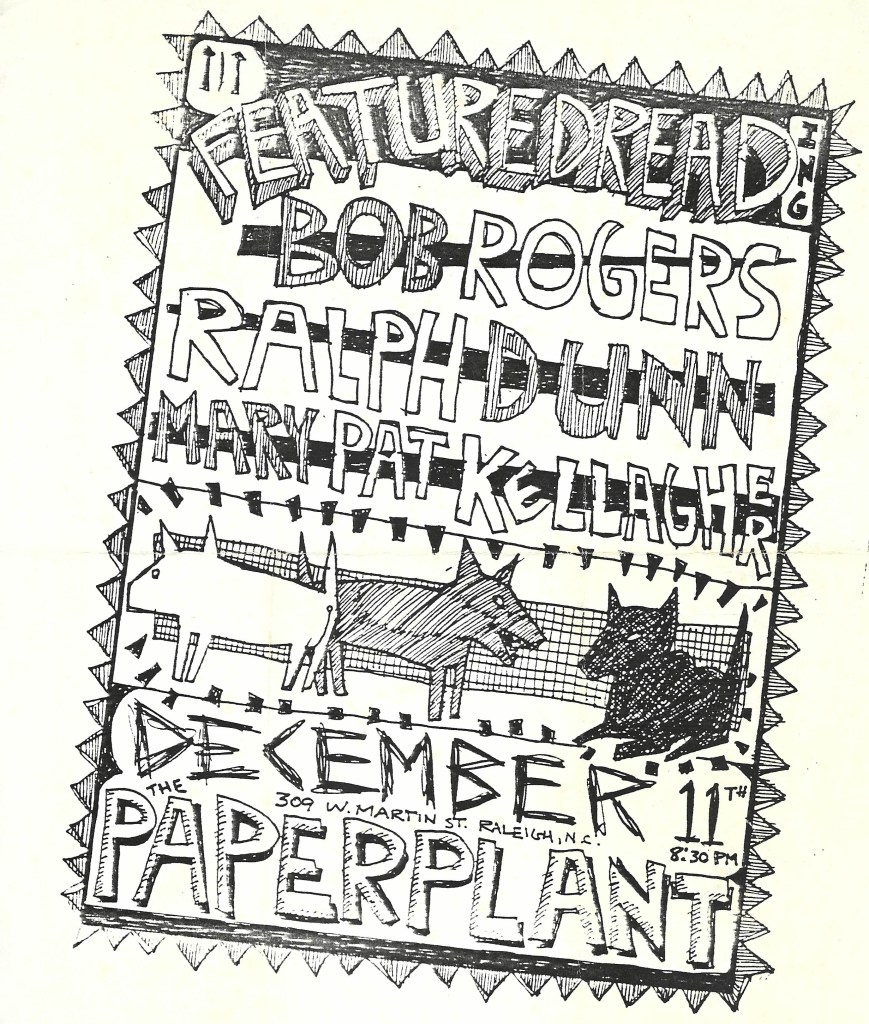 FEATURED READING
BOB ROGERS
RALPH DUNN
MARY PAT KELLAGHER
DECEMBER 11TH
8:30 PM
THE
309 W. MARTIN ST. RALEIGH, N.C.
PAPERPLANT